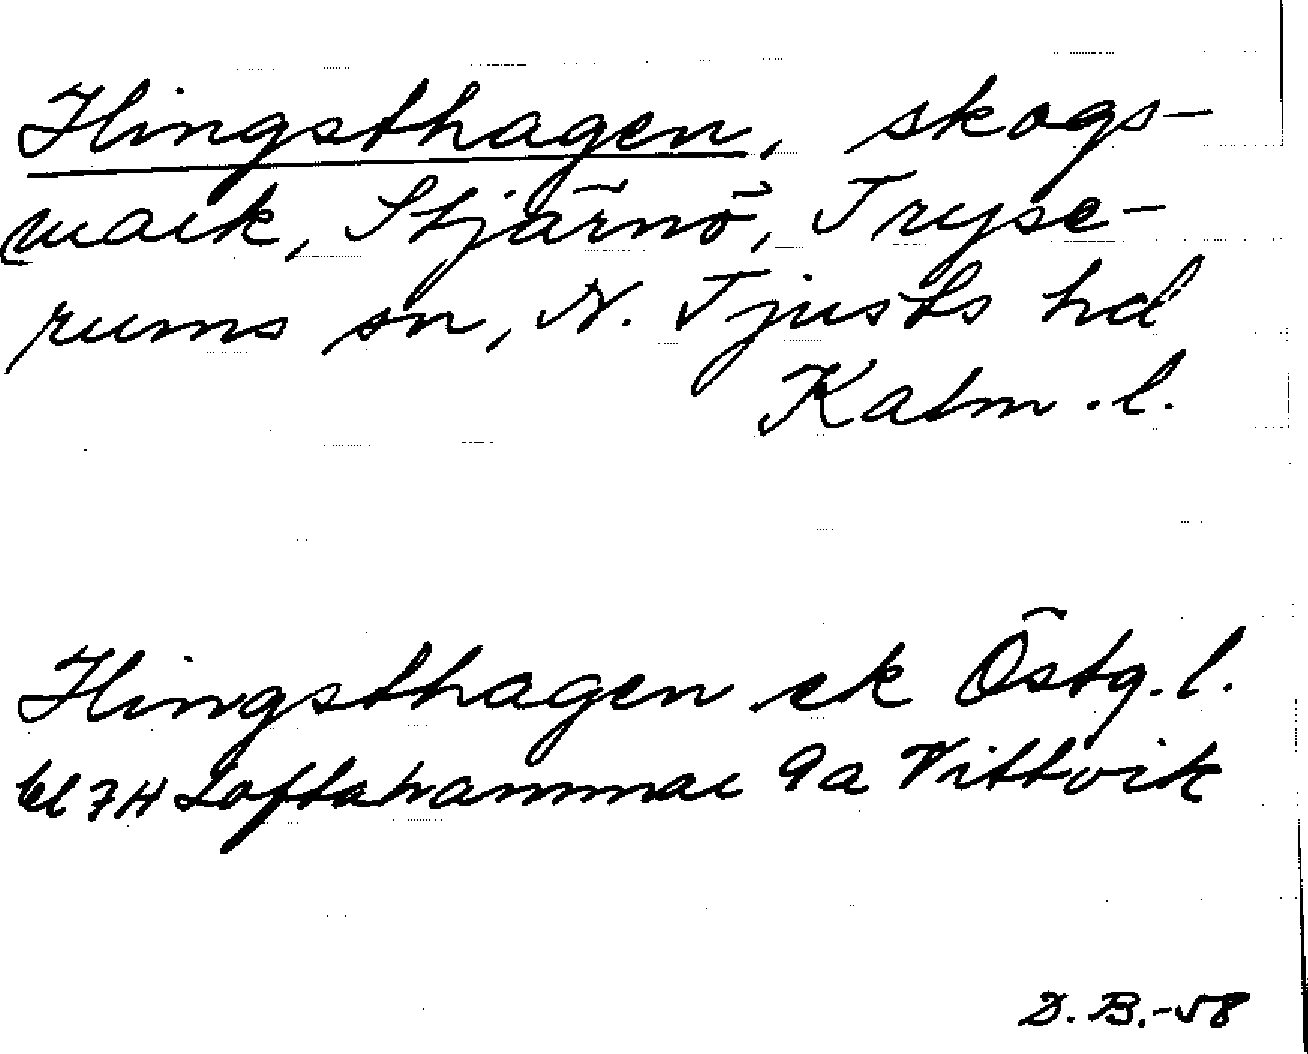 Hingsthagen, skogs-
mark, Stjärnö, Tryse-
rums sn, N. Tjusts hd
Kalm. l.
Hingsthagen ek Östg. l.
bl 7H Loftahammar 9a Vittvik
D. B. -58